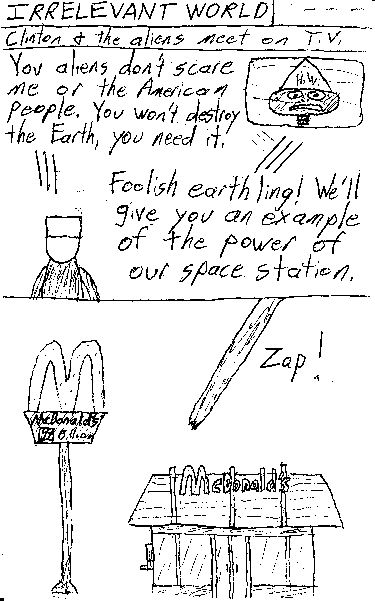 IRRELEVANT WORLD
Clinton & the aliens meet on T.V.
You aliens don't scare
me or the American
People. You won't destroy
the Earth, you need it.
H.W.
Foolish earthling! We'll
give you an example
of the power of
our space station.
Zap!
McDonald's
Billion
McDonald's